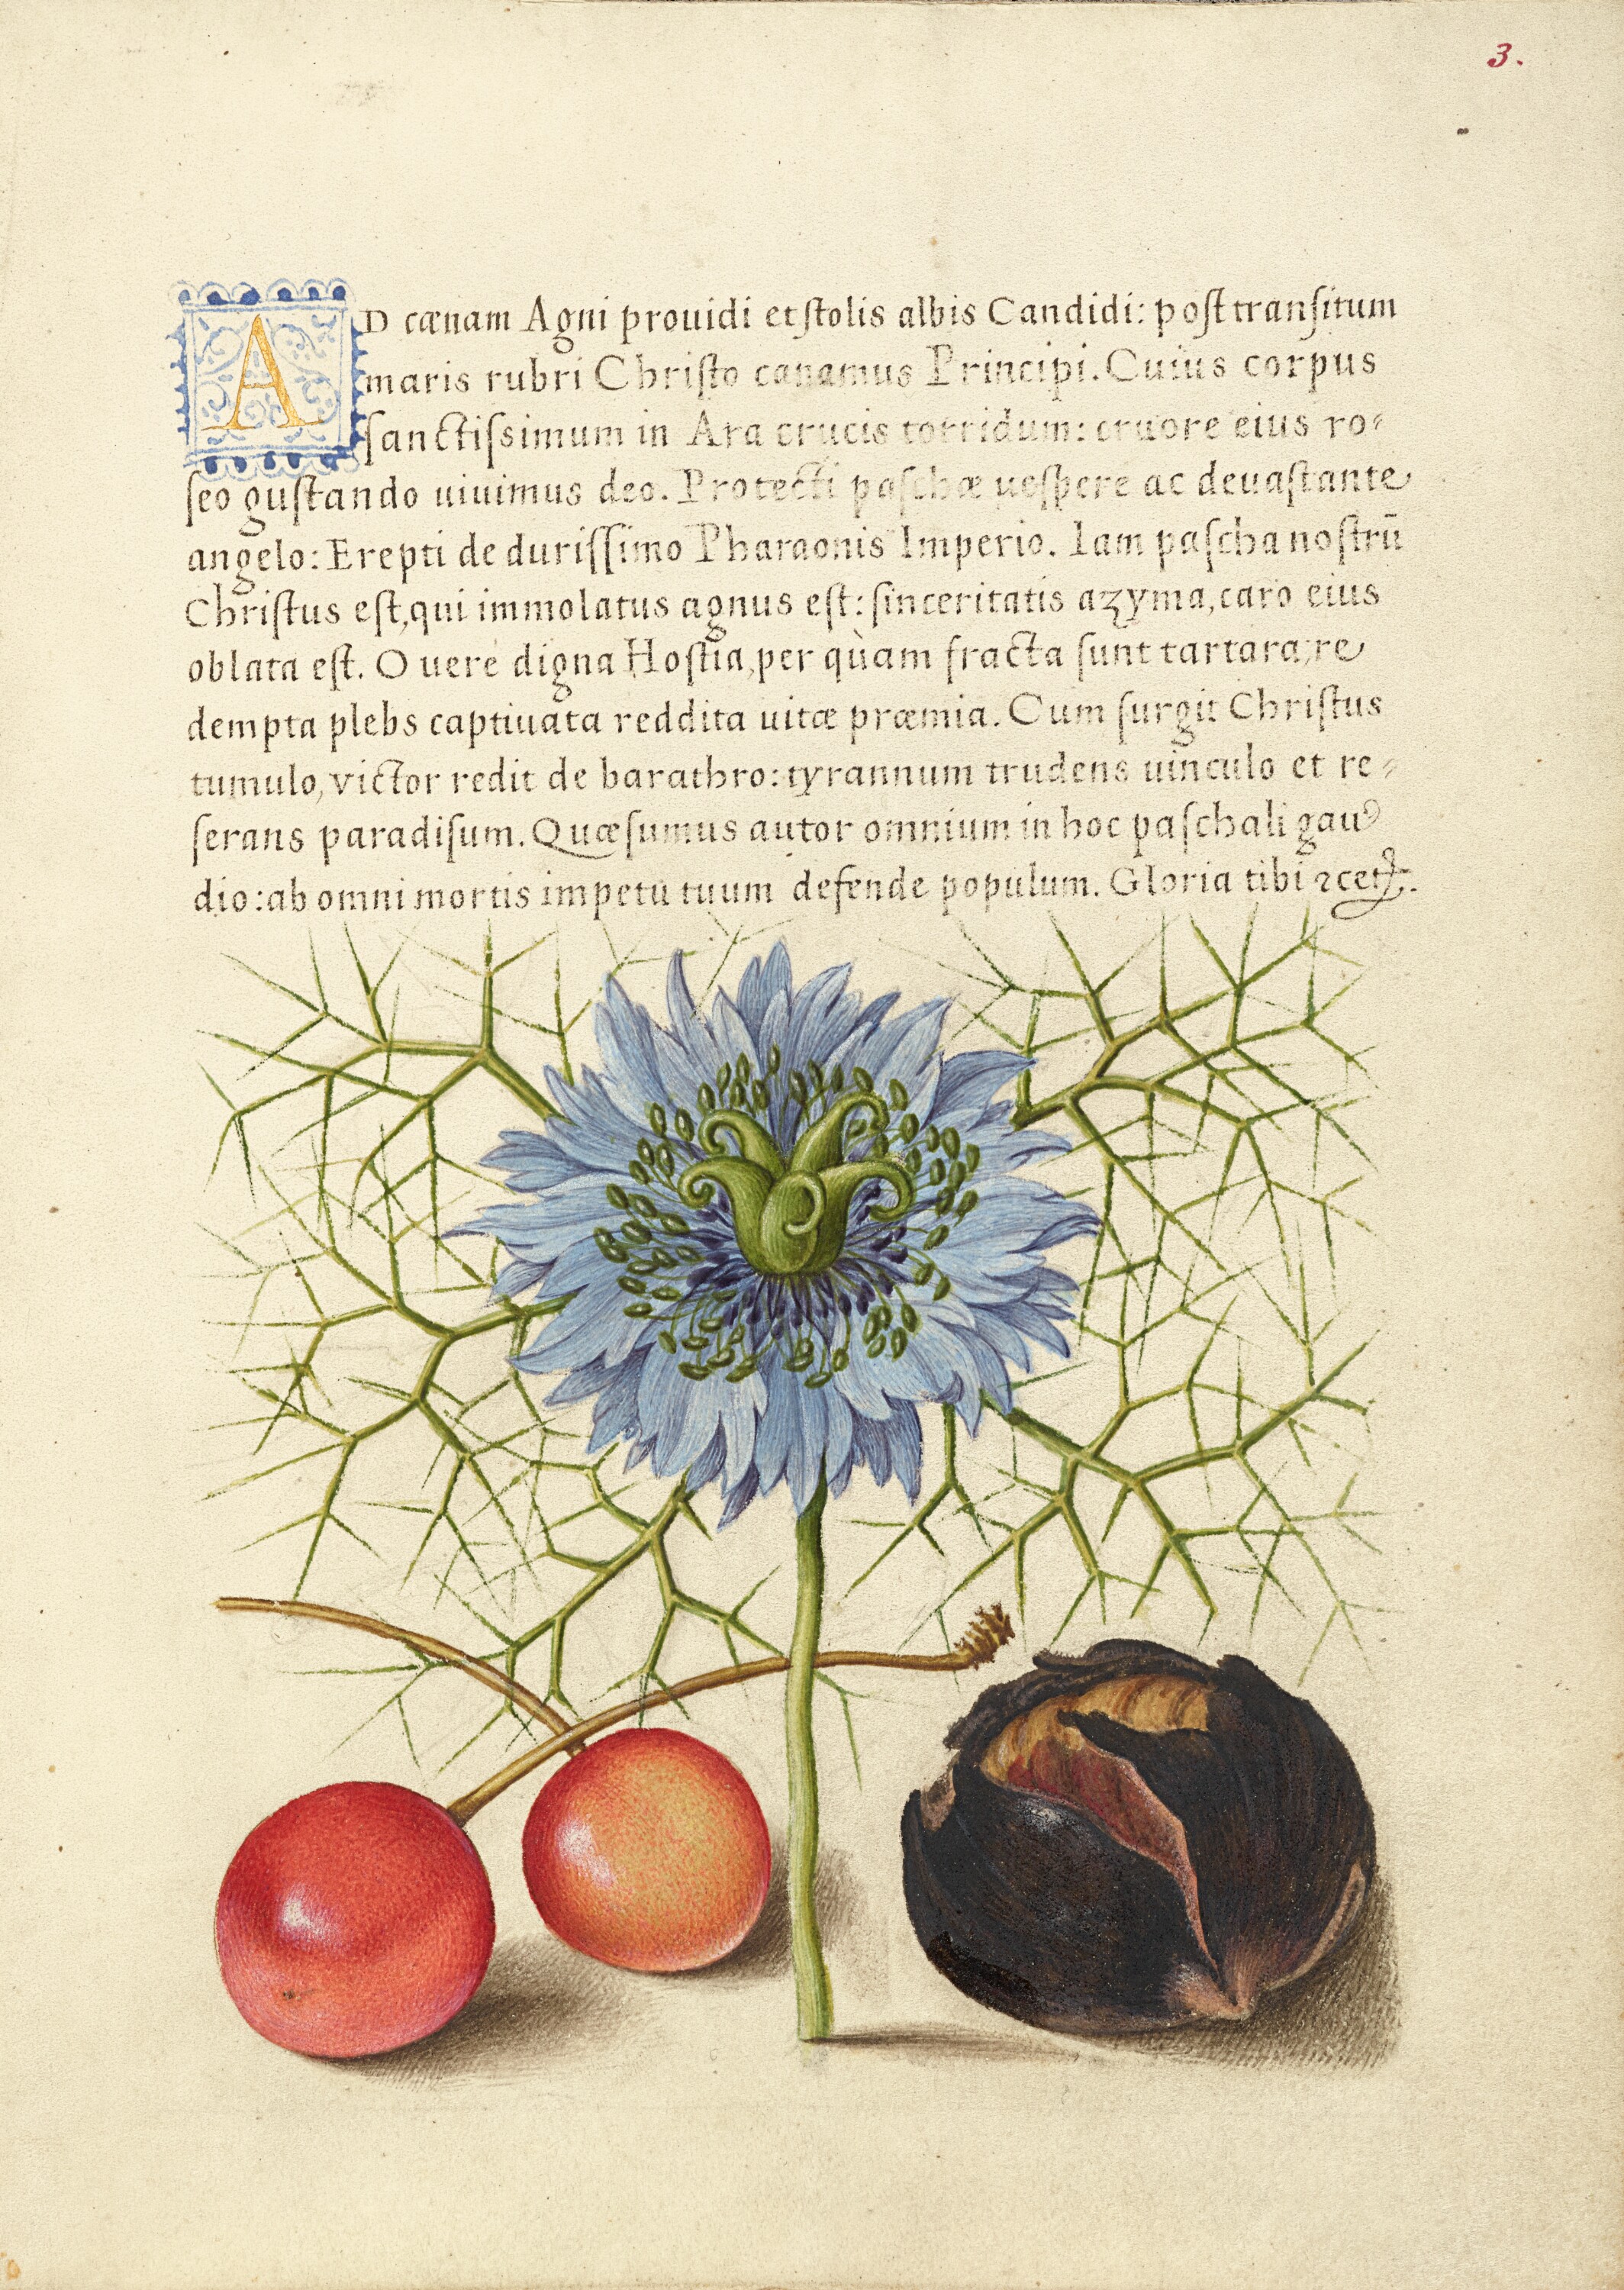 3.
AD cœnam Agni prouidi et ſtolis albis Candidi: poſt tranſitum
maris rubri Chriſto canamus Principi. Cuius corpus
ſanctiſsimum in Ara crucis torridum: cruore eius ro⸗
ſeo guſtando uiuimus deo. Protecti paſchæ ueſpere ac deuaſtante
angelo: Erepti de duriſſimo Pharaonis Imperio. Iam paſcha noſtrū
Chriſtus eſt, qui immolatus agnus eſt: ſinceritatis azyma, caro eius
oblata eſt. O uerè digna Hoſtia, per quàm fracta ſunt tartara, re
dempta plebs captiuata reddita uitæ præmia. Cum ſurgit Chriſtus
tumulo, victor redit de barathro: tyrannum trudens uinculo et re⸗
ſerans paradiſum. Quæſumus autor omnium in hoc paſchali gau
dio: ab omni mortis impetu tuum defende populum. Gloria tibi ⁊cet.